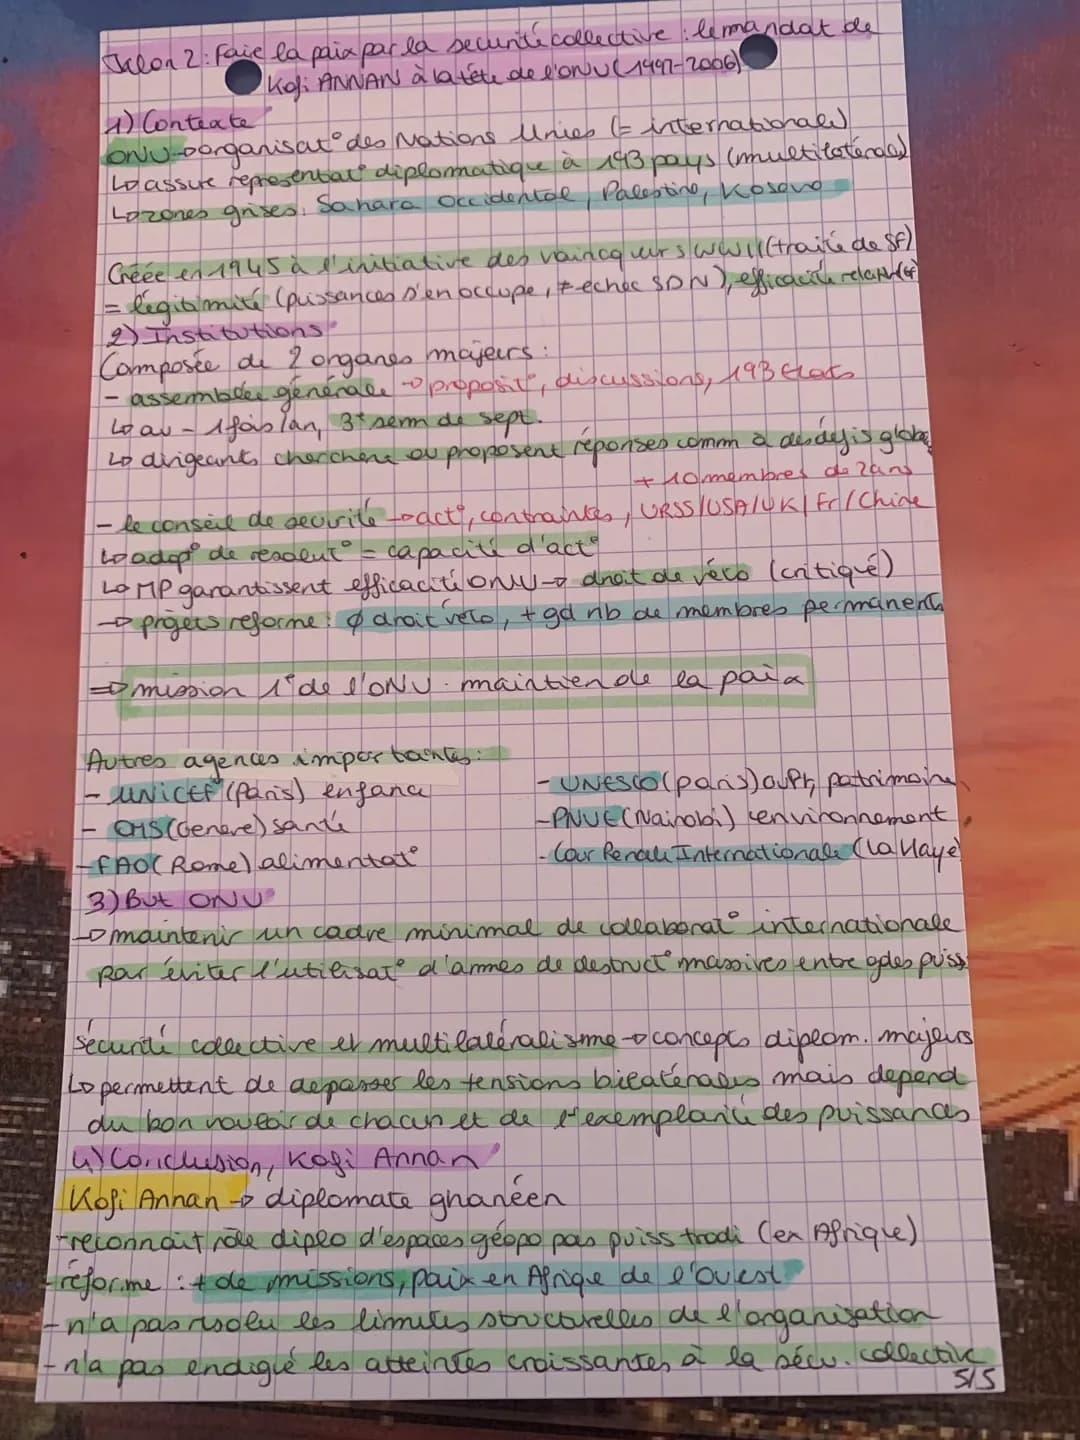 Jalon 2: Faie la paix par la securité collective : le mandat de
Kofi ANNAN à la tête de l'ONU (1997-2006)
1) Contexte
ONU → organisat° des Nations Unies (= internationale)
↳ assure représentat° diplomatique à 193 pays (multilatérale)
↳ zones grises: Sahara Occidental, Palestine, Kosovo
Créée en 1945 à l'initiative des vainqueurs WWII (traité de SF)
= légitimité (puissances s'en occupe, ≠ échec SDN), efficacité relative
2) Institutions
Composée de 2 organes majeurs :
- assemblée générale → proposit°, discussions, 193 états
↳ au - 1 fois/an, 3e sem de sept.
↳ dirigeants cherchent ou proposent réponses comm à des défis globx
+ 10 membres de 2ans
- le conseil de sécurité → act°, contraintes, URSS/USA/UK/Fr/Chine
↳ adop° de résolut° = capacité d'act°
↳ MP garantissent efficacité ONU → droit de véto (critiqué)
→ projets réforme : ∅ droit véto, + gd nb de membres permanents
⇒ mission 1e de l'ONU : maintien de la paix
Autres agences importantes :
- UNICEF (Paris) enfance
- UNESCO (Paris) cult, patrimoine
- OMS (Genève) santé
- PNUE (Nairobi) environnement
- FAO (Rome) alimentat°
- Cour Pénale Internationale (La Haye)
3) But ONU
→ maintenir un cadre minimal de collaborat° internationale
par éviter l'utilisat° d'armes de destruct° massives entre gdes puiss
sécurité collective et multilatéralisme → concepts diplom. majeurs
↳ permettent de dépasser les tensions bilatérales mais dépend
du bon vouloir de chacun et de l'exemplarité des puissances
4) Conclusion, Kofi Annan
Kofi Annan → diplomate ghanéen
- reconnaît rôle diplo d'espaces géopo pas puiss tradi (ex Afrique)
- réforme : + de missions, paix en Afrique de l'Ouest
- n'a pas résolu les limites structurelles de l'organisation
- n'a pas endigué les atteintes croissantes à la sécu. collective
5/5